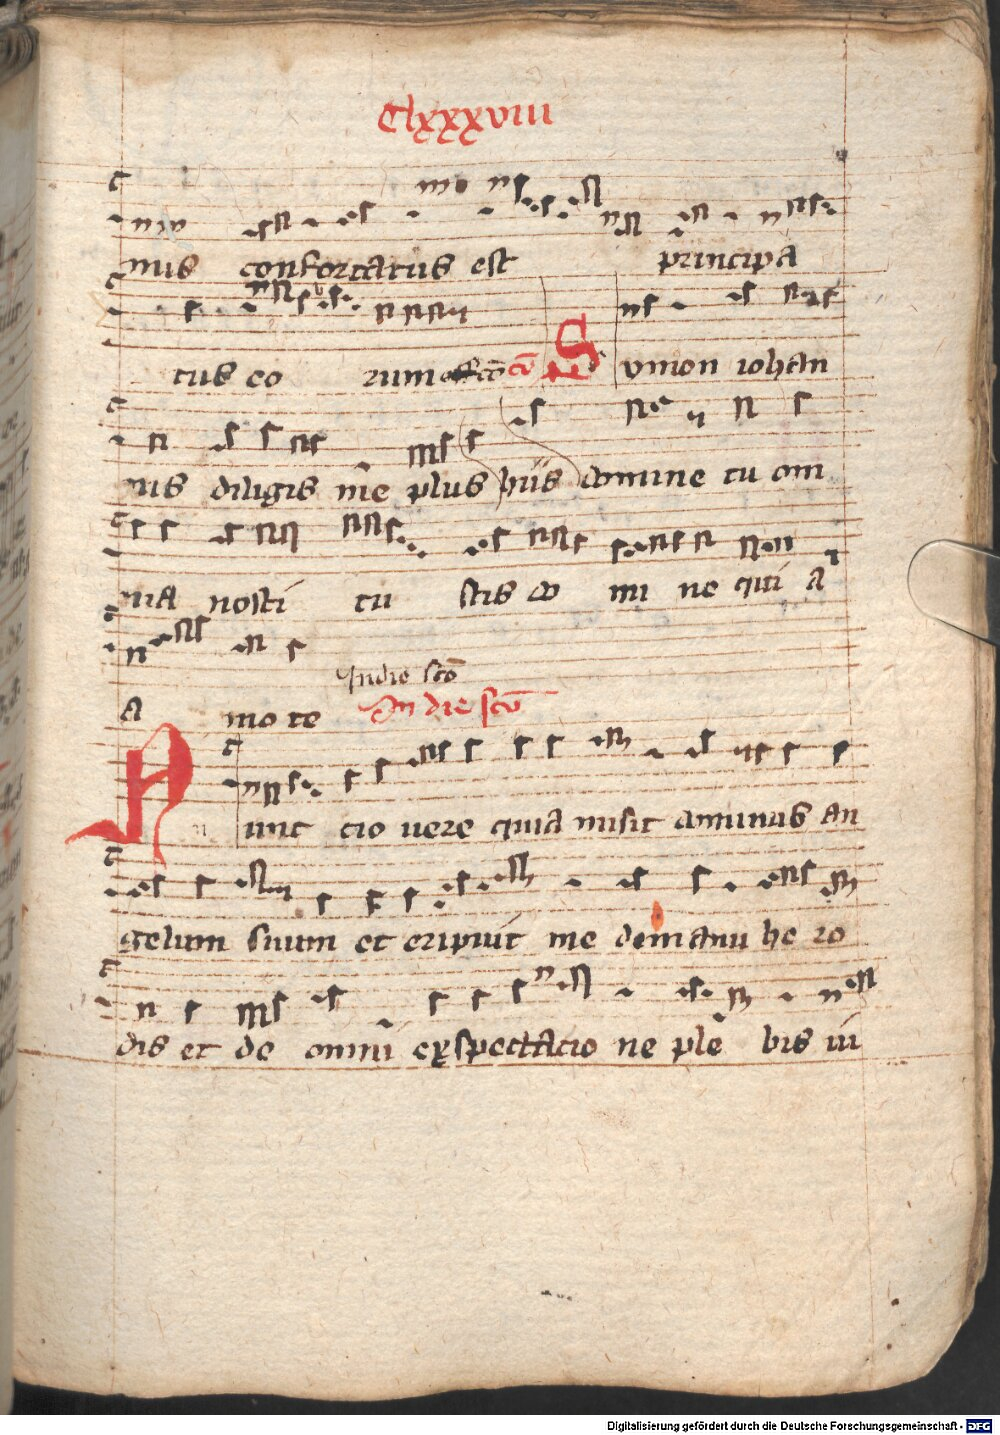 Clxxxviii
mis confortatus est principa
tus eo rum cō
S ymon iohan
nis diligis me plus hiis domine tu om
nia nosti tu scis do mi ne qui a
Jn die scō
a mo te Jn die scō
N unc scio vere quia misit dominus an
gelum suum et eripuit me de manu he ro
dis et de omni exspectacio ne ple bis iu
Digitalisierung gefördert durch die Deutsche Forschungsgemeinschaft - DFG